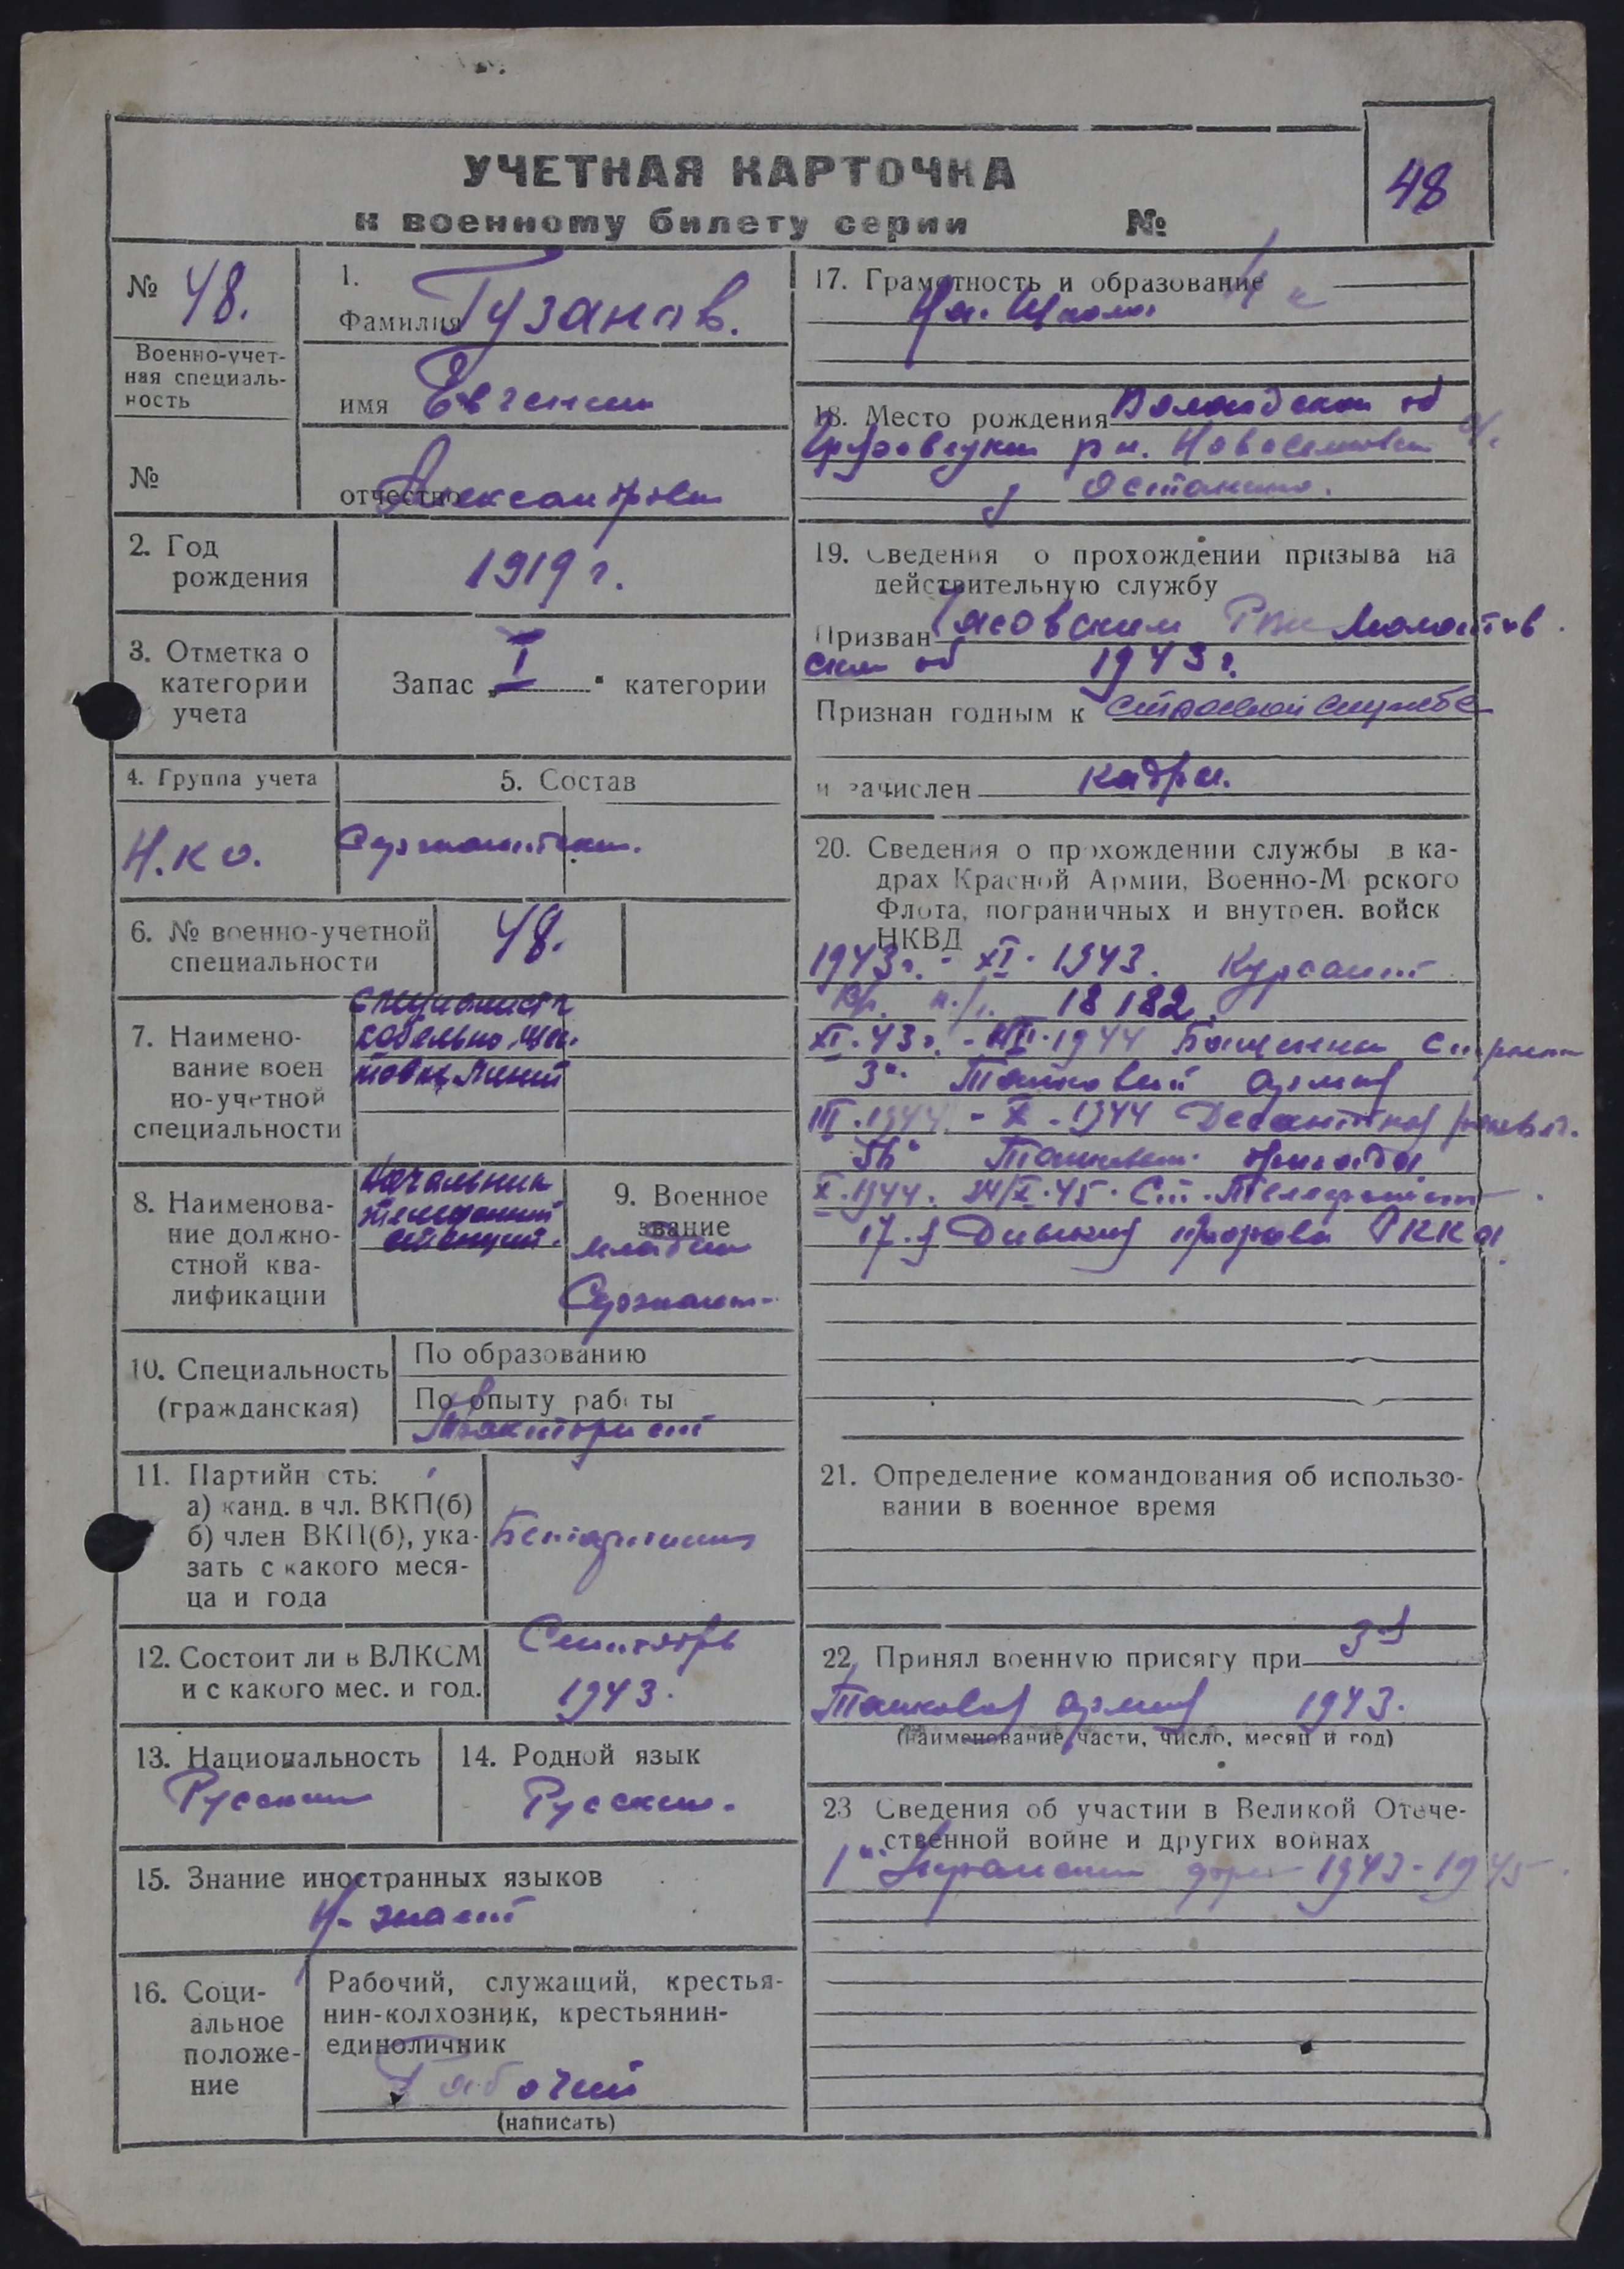 УЧЕТНАЯ КАРТОЧКА
к военному билету серии №
48
№ 48.
Военно-учет-
ная специаль-
ность
№
1.
Фамилия Гузанов.
имя Евгений
отчество Александрович
2. Год
рождения
1919 г.
3. Отметка о
категории
учета
Запас „I" категории
4. Группа учета
Н.К О.
5. Состав
Сержантский.
6. № военно-учетной
специальности
48.
7. Наимено-
вание воен
но-учетной
специальности
специалист
кабельно
линий
8. Наименова-
ние должно-
стной ква-
лификации
Начальник
телефонной
станции.
9. Военное
звание
младший
Сержант
10. Специальность
(гражданская)
По образованию
По опыту раб ты
Тракторист
11. Партийн сть:
а) канд. в чл. ВКП(б)
б) член ВКП(б), ука-
зать с какого меся-
ца и года
12. Состоит ли в ВЛКСМ
и с какого мес. и год.
Сентябрь
1943.
13. Национальность
Русский
14. Родной язык
Русский.
15. Знание иностранных языков
Не знает
16. Соци-
альное
положе-
ние
Рабочий, служащий, крестья-
нин-колхозник, крестьянин-
единоличник
Рабочий
(написать)
17. Грамотность и образование
18. Место рождения Вологодской об
рн.
Останкино.
19. Сведения о прохождении призыва на
действительную службу
Призван РВК Молотов
ской об 1943 г.
Признан годным к строевой службе
и зачислен кадры.
20. Сведения о прохождении службы в ка-
драх Красной Армии, Военно-М рского
Флота, пограничных и внутрен. войск
НКВД
1943 г. - XI. 1943. Курсант
18 182.
XI. 43 г. - III. 1944
3й Танковый армия
III. 1944 - X. 1944 Десантной
56й Танковый бригада
X. 1944. 24/X. 45. Ст. Телефонист
17. я Дивизия прорыва РККА
21. Определение командования об использо-
вании в военное время
22. Принял военную присягу при 3 я
Танковая армия 1943.
(наименование части, число, месяц и год)
23 Сведения об участии в Великой Отече-
ственной войне и других войнах
1й Украинский 1943-1945